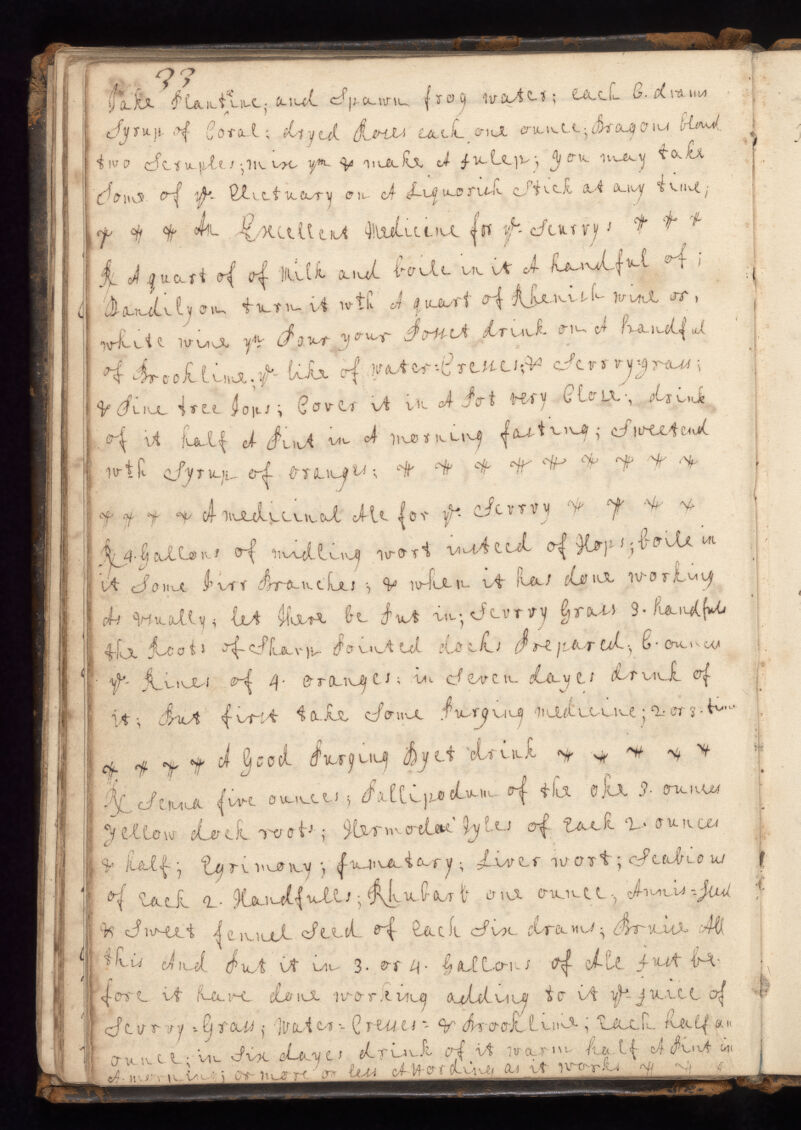 33
Take Plantine; and Spawn frog water; each 6. drams
Syrup of Coral; dryed Roses each one ounce; Dragons bloud
two Scruples; mix ym & make A Julep; you may take
Some of ye Elictuary on A Liquorish Stick at any time;
An Excellent Medicine for ye Scurvy;
℞ A quart of of Milk and boile in it A handful of;
Dandilyon turn it wth A quart of Rhenish wine or,
white wine yn Pour your Posset drink on A handful
of Brooklime; ye like of water=Cresses; & Scrrvy=grass;
& Pine tree Tops; Cover it in A Pot very Close; drink
of it half A Pint in A morning fasting; Sweetend
wth Syrup of oranges;
A medicinal Ale for ye Scrrvy
℞ 4. Gallons of midling wort insteed of Hops; boile in
it Some Firr Branches; & when it has done working
As usually; let There be Put in; Scvrvy Grass 3. handfuls
the Roots of Sharp Pointed docks Prepared; 6. ounces
ye Rines of 4. oranges; in Seven dayes drink of
it; But first take Some Purging medicine; 2. or 3. times
A Good Purging Dyet drink
℞ Senna five ounces; Pallipodum of the oke 3. ounces
Yellow dock roots; Hermodactyles of Each 2. ounces
& half; Egrimony; fumatary; Liver wort; Scabious
of Each 2. Handfulls; Rhubarb one ounce; Annis=Seed
& Sweet fennel Seed of Each Six drams; Bruise All
this And Put it in 3. or 4. Gallons of Ale Just be-
fore it have done working adding to it ye Juice of
Scvrvy=Grass; Water=Cresses= & Brooklime; Each half an
ounce; in Six dayes drink of it warm half A Pint in
A morning; or more or less According as it works